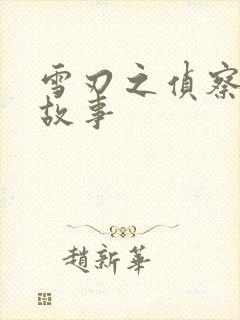 雪刃之偵察
故事
趙新華